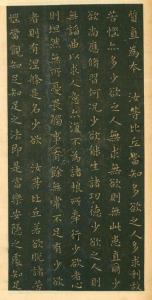 質直為本　汝等比丘當知多欲之人多求利故
苦惱亦多少欲之人無求無欲則無此患直爾少
欲尚應修習何況少欲能生諸功德少欲之人則
無諂曲以求人意亦復不為諸根所牽行少欲者心
則坦然無所憂畏觸事有餘常無不足有少欲
者則有涅槃是名少欲　汝等比丘若欲脫諸苦
惱當觀知足知足之法即是富樂安隱之處知足